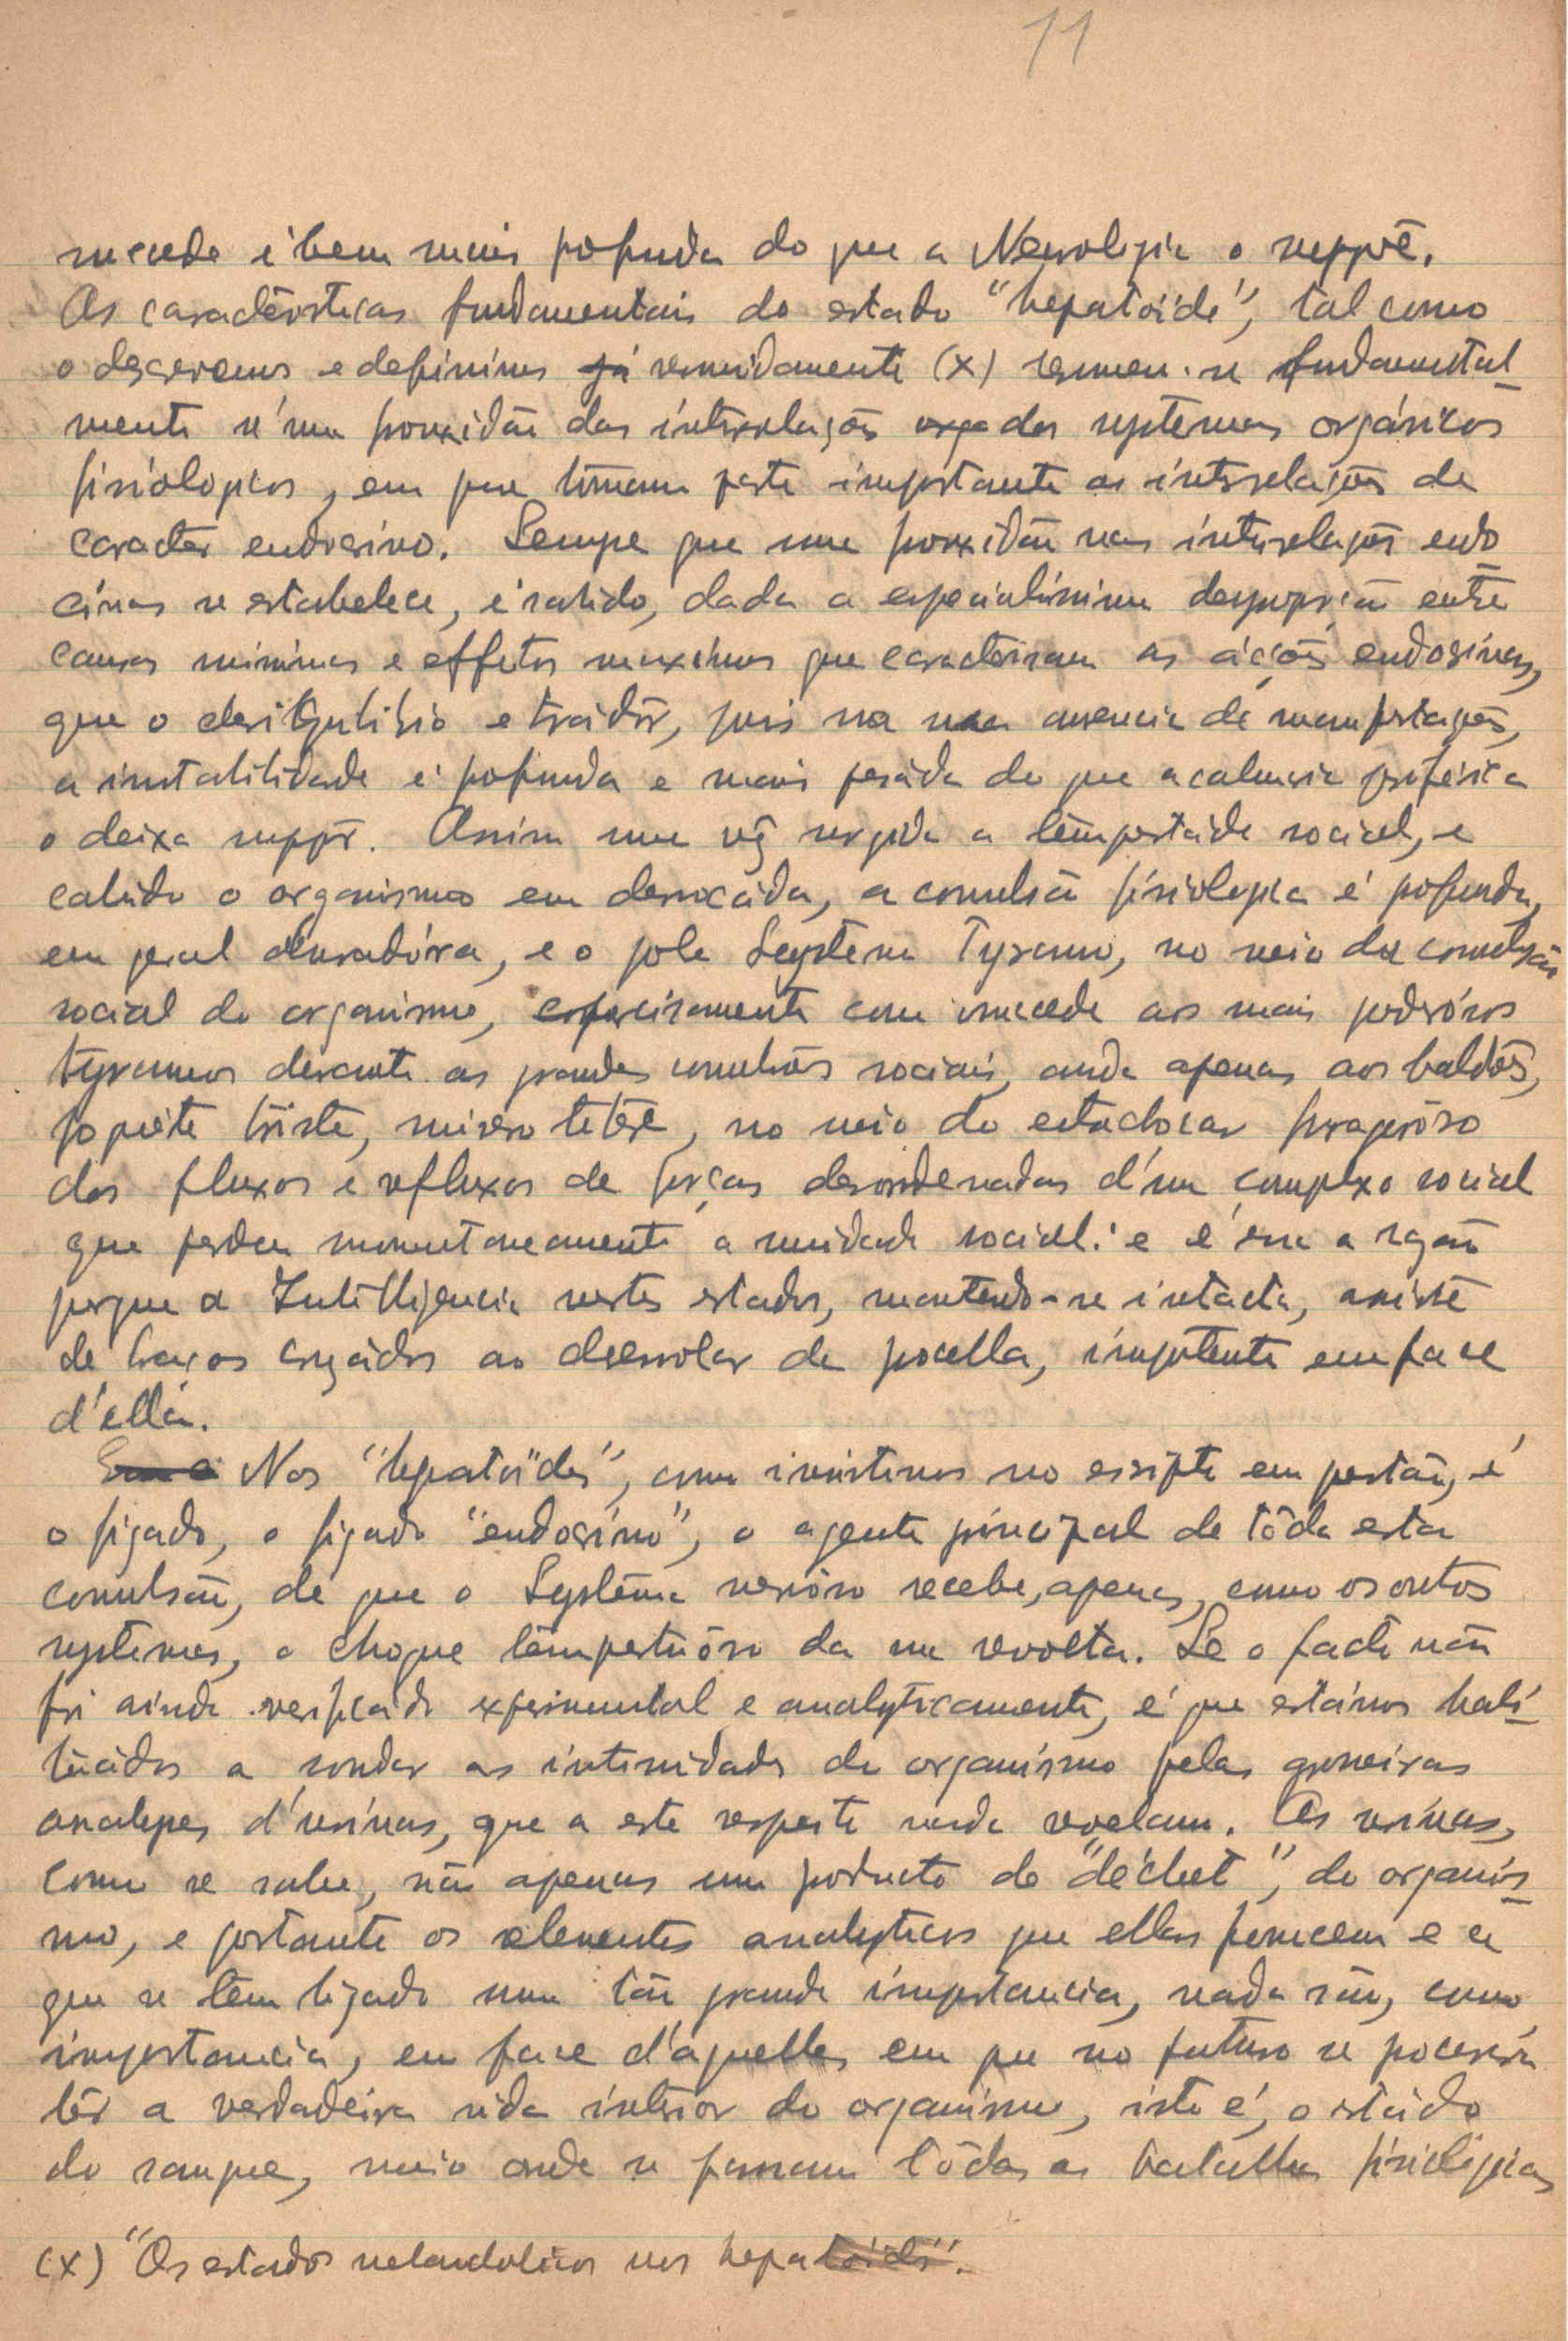 11
succede é bem mais profunda do que a Neurologia o suppõe.
As caracteristicas fundamentais do estado "hepatoïde", tal como
o descrevemos e definimos já resumidamente (x) resumem-se fundamental-
mente n'uma frouxidão das interrelações dos systemas orgánicos
fisiologicos, em que tômam parte importante as interrelações de
caracter endocrino. Sempre que uma frouxidão nas interrelações endó-
crinas se estabelece, é sabido, dada a especialissima desproporção entre
causas minimas e effeitos maximos que caracterisam as acções endocrinas,
que o desiquilibrio é traidôr, pois na sua ausencia de manifestações,
a instabilidade é profunda e mais pesáda do que a calmaria periférica
o deixa suppôr. Assim uma vêz surgida a têmpestáde social, e
cahido o organismo em derrocáda, a convulsão fisiologica é profunda,
em geral duradôira, e o pobre Systema Tyranno, no meio da convulsão
social do organismo, precisamente como succede aos mais poderósos
tyrannos durante as grandes convulsões sociais, anda apenas aos baldões,
joguête triste, misero titere, no meio do entrechocar fragorôso
dos fluxos e refluxos de forças desordenadas d'um complexo social
que perdeu momentaneamente a unidade social: e é essa a razão
porque a Intelligencia nestes estados, mantendo-se intacta, assiste
de braços cruzádos ao desenrolar da procella, impotente em face
d'ella.
Nos "hepatoïdes", como insistimos no escripto em questão, é
o figado, o figado "endocrino", o agente principal de tôda esta
convulsão, de que o Systêma nervôso recebe, apenas, como os outros
systemas, o choque têmpestuôso da sua revolta. Se o facto não
foi ainda verificádo experimental e analyticamente, é que estámos habi-
tuádos a sondar as intimidades do organismo pelas grosseiras
analyses d'urinas, que a este respeito nada revelam. As urinas,
como se sabe, são apenas um producto de "déchet", do organis-
mo, e portanto os elementos analyticos que ellas fornecem e a
que se têm ligado uma tão grande importancia, nada são, como
importancia, em face d'aquelles em que no futuro se procurará
lêr a verdadeira vida interior do organismo, isto é, o estádo
do sangue, meio onde se passam tôdas as batalhas fisiológicas
(x) "Os estados melancholicos nos hepatoïdes".